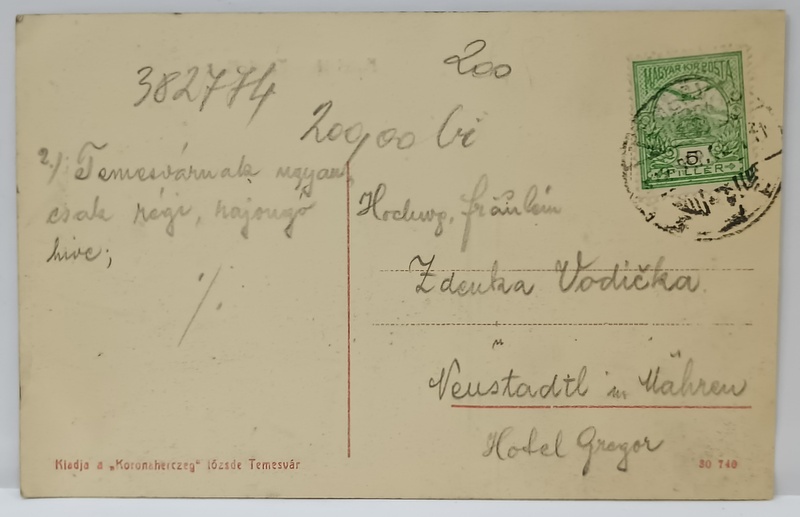 200
382774
200,00
2./ Temesvárnak ugyan
csak régi, rajongó
hive;
/.
MAGYAR KIR. POSTA
5
FILLÉR
Hochwg. fräulein
Zdenka Vodička.
Neustadtl in Mähren
Hotel Gregor
Kiadja a „Koronaherczeg" tőzsde Temesvár
30 740